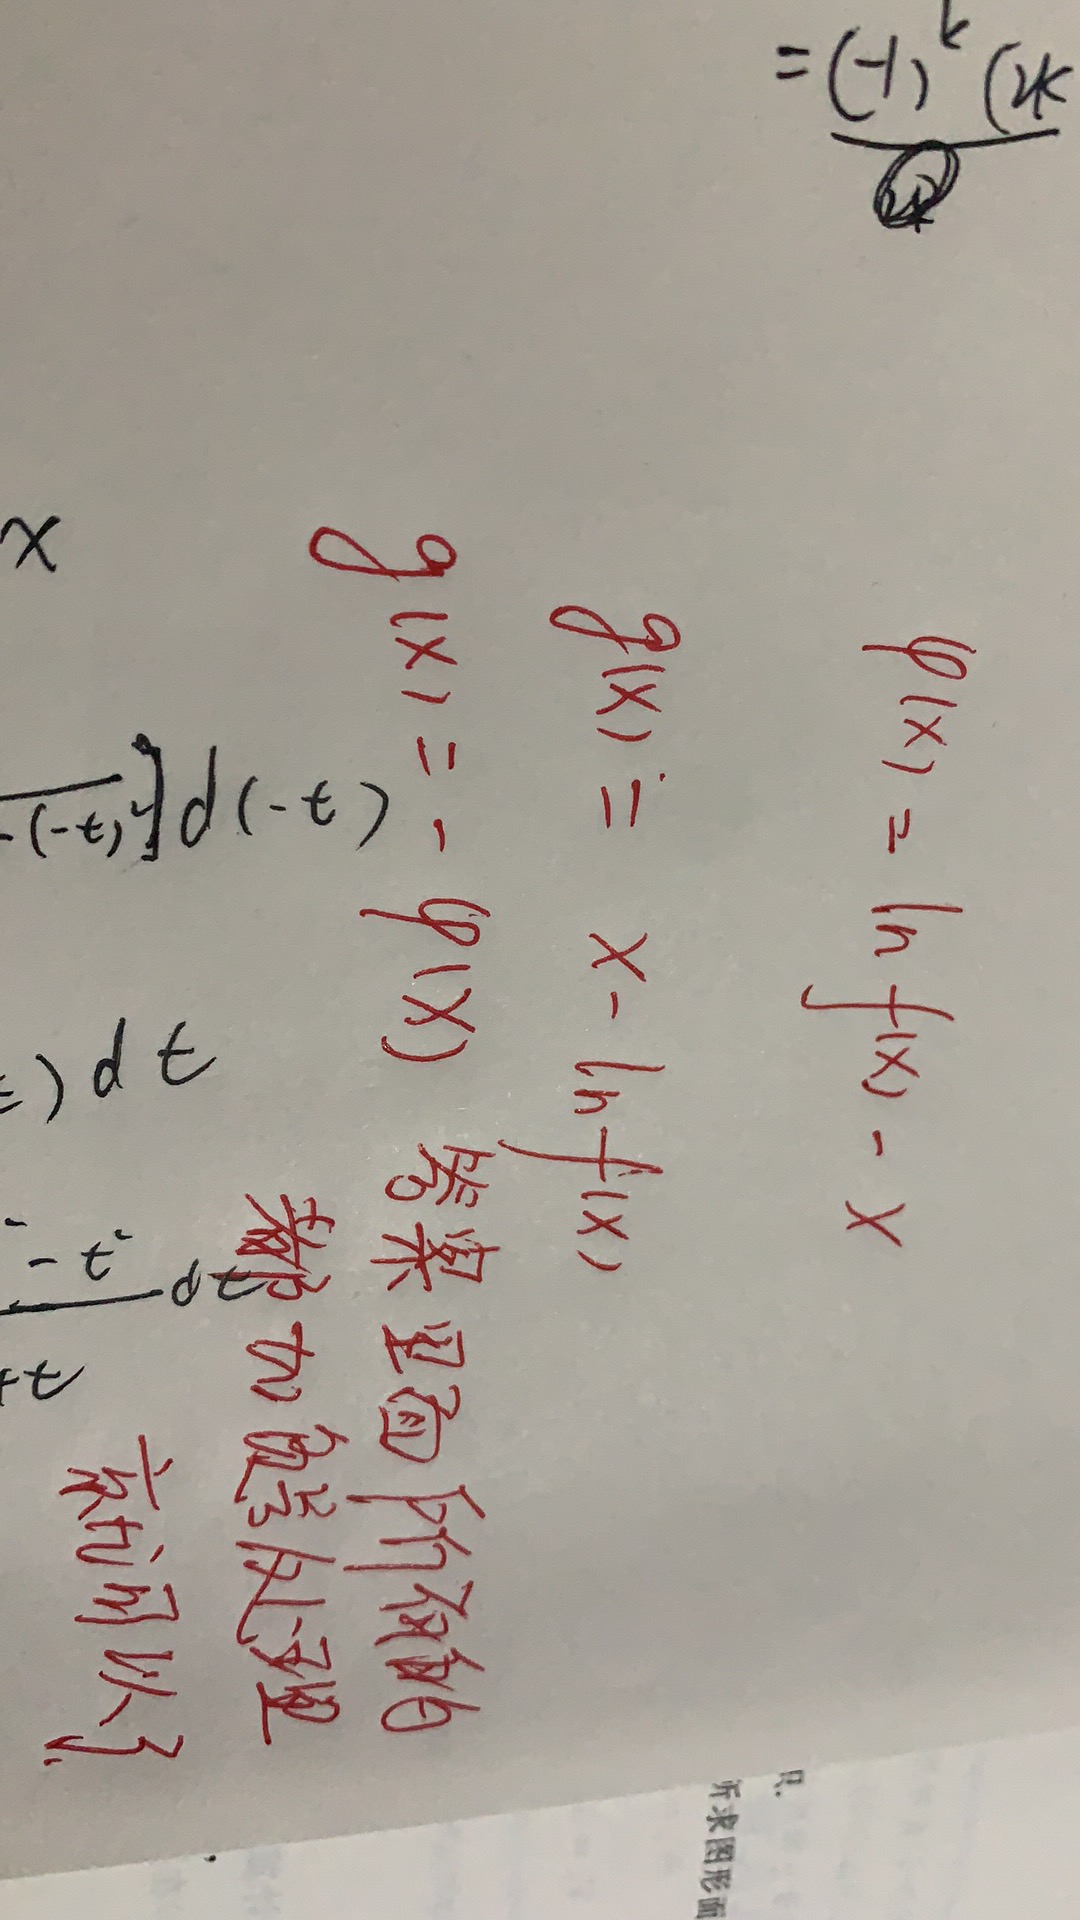 φ(x) = ln f(x) - x
g(x) = x - ln f(x)
g(x) = - φ(x) 答案里面所有的
都加负号处理
就可以了.
= (-1)^k (2k
x
-(-t)²]d(-t)
)dt
- t² dt
+t
所求图形面